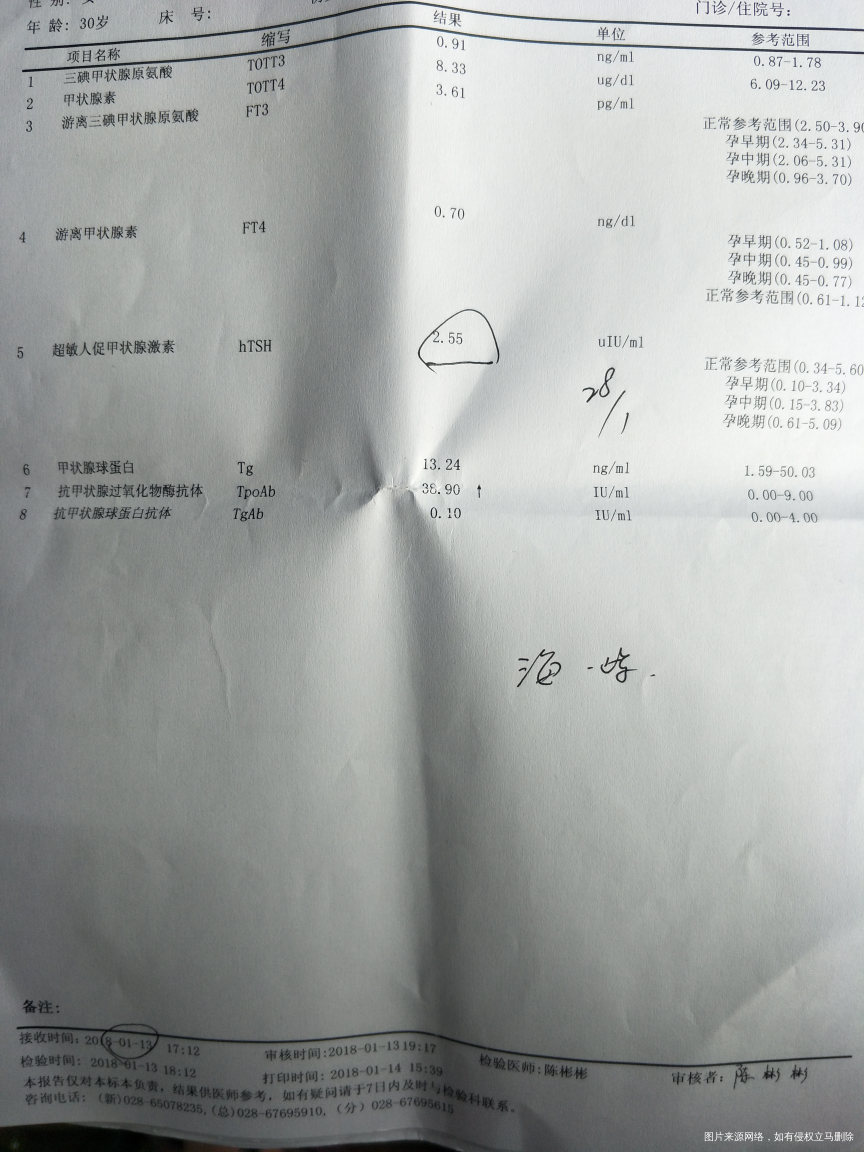 性 别: 女
年 龄: 30岁 床 号: 门诊/住院号:
项目名称 缩写 结果 单位 参考范围
1 三碘甲状腺原氨酸 TOTT3 0.91 ng/ml 0.87-1.78
2 甲状腺素 TOTT4 8.33 ug/dl 6.09-12.23
3 游离三碘甲状腺原氨酸 FT3 3.61 pg/ml
正常参考范围(2.50-3.90
孕早期(2.34-5.31)
孕中期(2.06-5.31)
孕晚期(0.96-3.70)
4 游离甲状腺素 FT4 0.70 ng/dl
孕早期(0.52-1.08)
孕中期(0.45-0.99)
孕晚期(0.45-0.77)
正常参考范围(0.61-1.12
5 超敏人促甲状腺激素 hTSH 2.55 uIU/ml
正常参考范围(0.34-5.60
孕早期(0.10-3.34)
孕中期(0.15-3.83)
孕晚期(0.61-5.09)
28/1
6 甲状腺球蛋白 Tg 13.24 ng/ml 1.59-50.03
7 抗甲状腺过氧化物酶抗体 TpoAb 38.90 ↑ IU/ml 0.00-9.00
8 抗甲状腺球蛋白抗体 TgAb 0.10 IU/ml 0.00-4.00
备注:
接收时间: 2018-01-13 17:12 审核时间:2018-01-13 19:17 检验医师:陈彬彬 审核者: 陈彬彬
检验时间: 2018-01-13 18:12 打印时间: 2018-01-14 15:39
本报告仅对本标本负责，结果供医师参考，如有疑问请于7日内及时与检验科联系。
咨询电话: (新)028-65078235,(总)028-67695910, (分) 028-67695615
图片来源网络，如有侵权立马删除